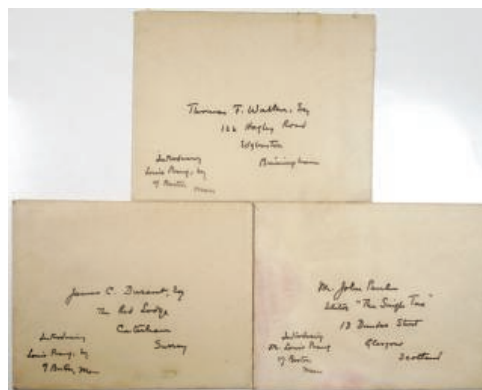 Thomas F. Walker, Esq
122 Hagley Road
Edgbaston
Birmingham
Introducing
Louis Prang, Esq
of Boston
Mass
James C. Durant, Esq
The Red Lodge
Caterham
Surrey
Introducing
Louis Prang, Esq
of Boston, Mass
Mr. John Paul
Editor "The Single Tax"
13 Dundas Street
Glasgow
Scotland
Introducing
Mr Louis Prang
of Boston
Mass